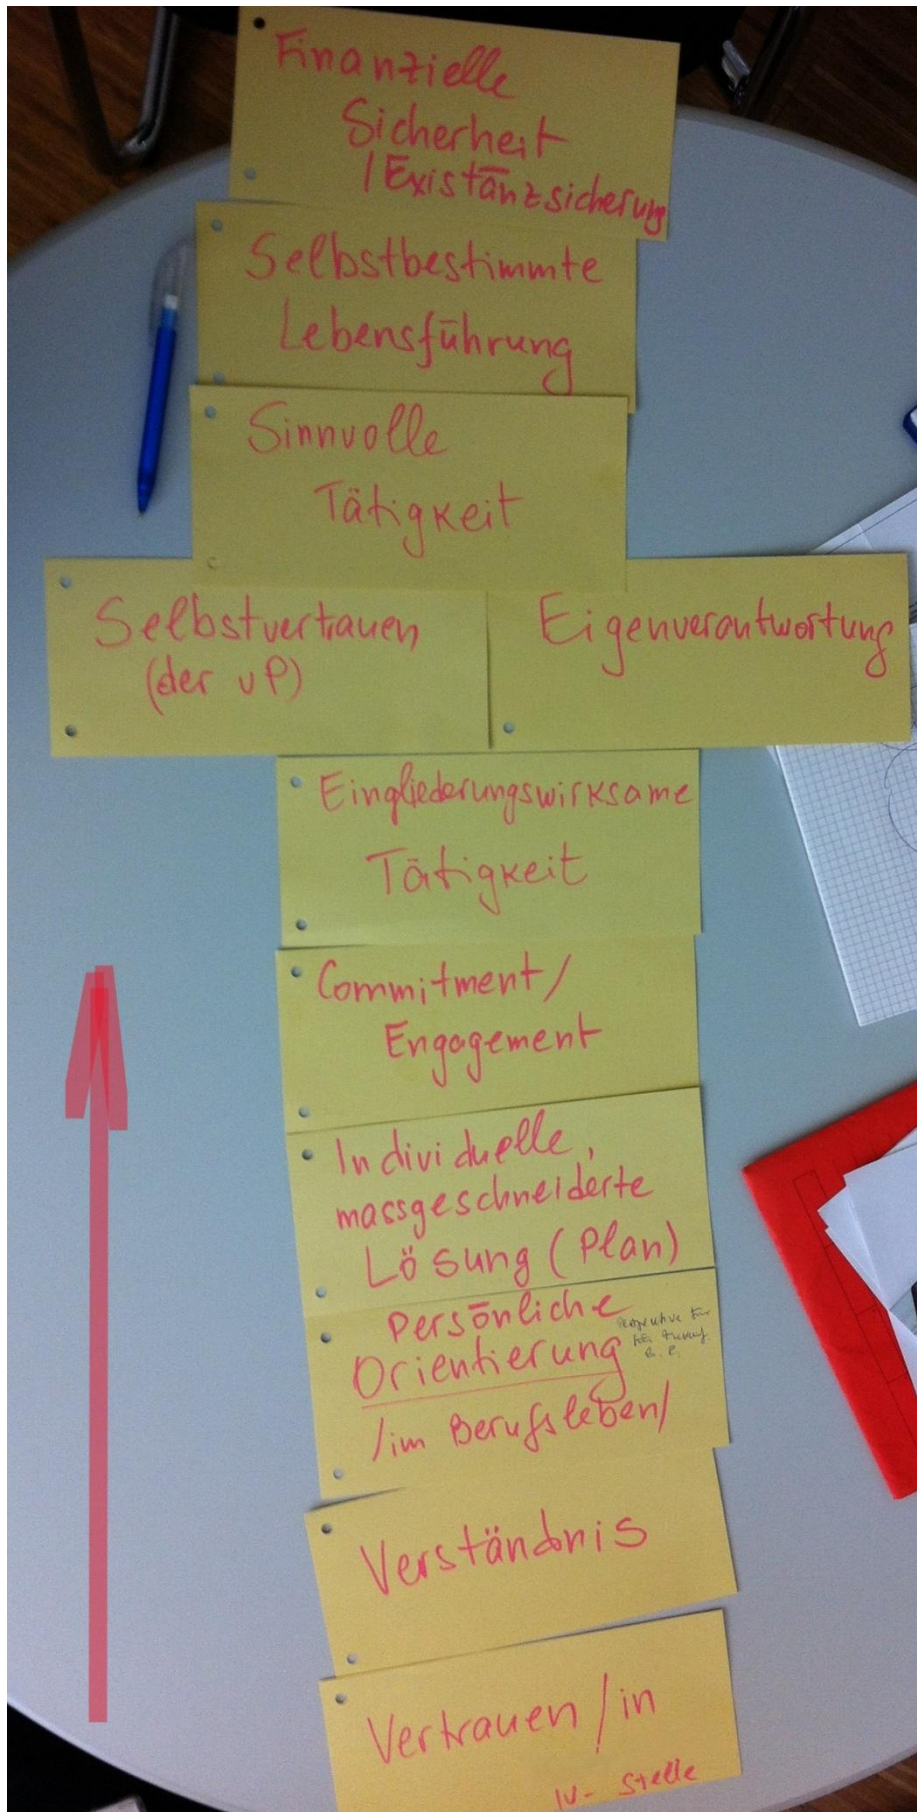 Finanzielle
Sicherheit
/Existänzsicherung
Selbstbestimmte
Lebensführung
Sinnvolle
Tätigkeit
Selbstvertrauen
(der vP)
Eigenverantwortung
Eingliederungswirksame
Tätigkeit
Commitment/
Engagement
Individuelle,
massgeschneiderte
Lösung (Plan)
Persönliche
Orientierung
/im Berufsleben/
Verständnis
Vertrauen /in
IV- Stelle